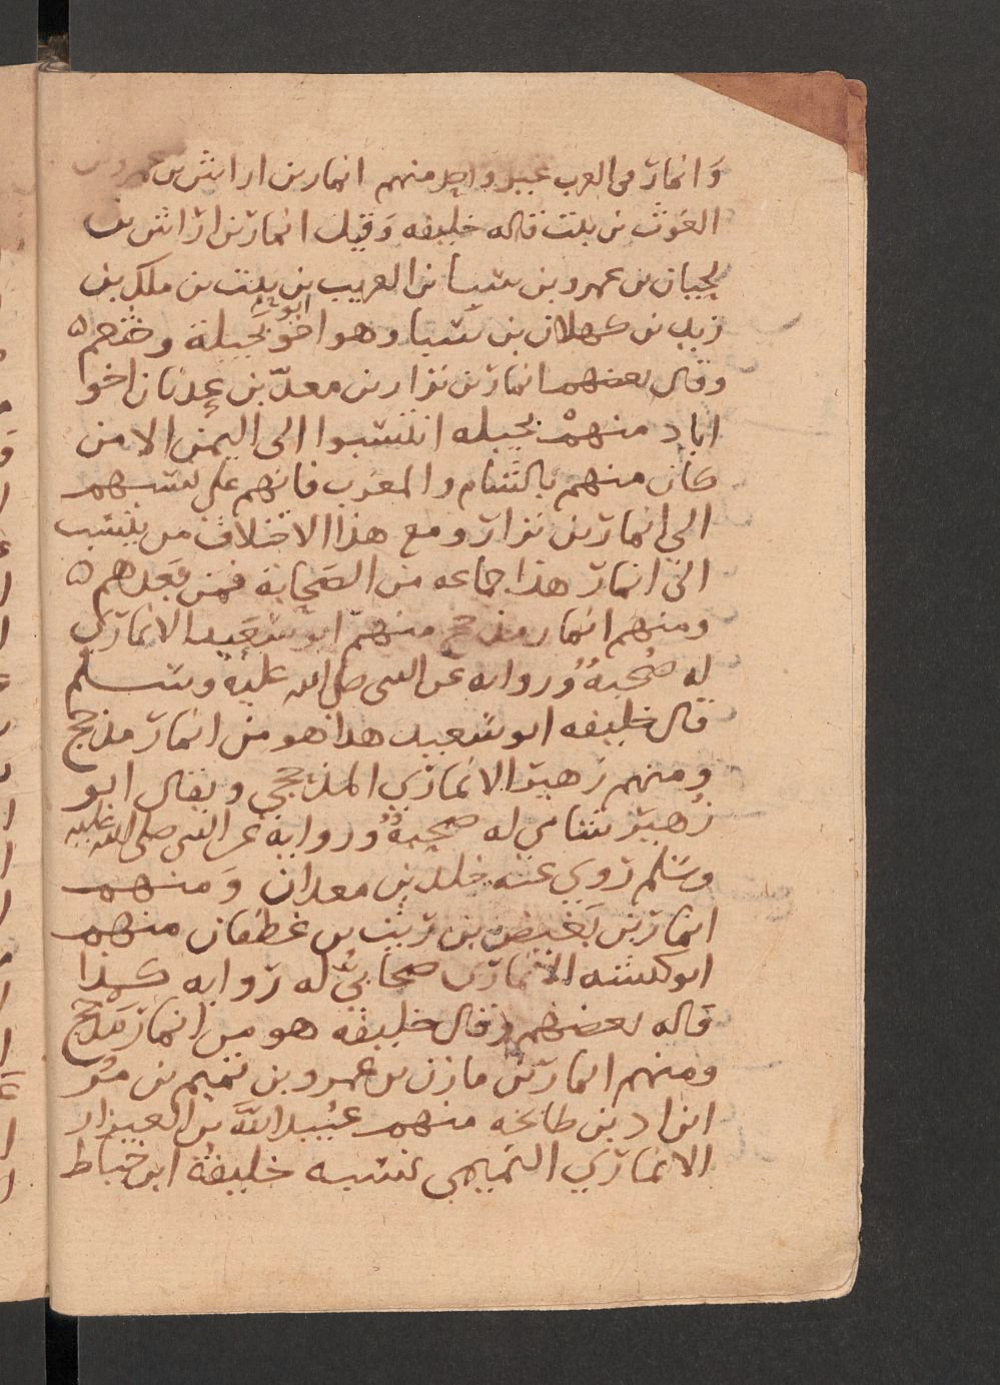 وانمار في العرب غير واحد منهم انمار بن اراش بن عمرو بن
الغوث بن بنت قاله خليفه وقيل انمار بن اراش بن
لحيان بن عمرو بن سبا بن الغريب بن بنت بن ملك بن
زيد بن كهلان بن سبا وهو ابو اخو بجيلة وخثعم ه
وقال بعضهم انمار بن نزار بن معدّ بن عدنان اخوا
اياد منهمْ بجيله انتسبوا الى اليمن الا من
كان منهم بالشام والمغرب فانهم على نسبهم
الي انمار بن نزار ومع هذا الاختلاف من ينسب
الى انمار هذا جماعه من الصحابة فمن بعدهم ه
ومنهم انمار مذحج منهم ابو سعيد الانماري
له صُحبةٌ ورواية عن النبي صلى الله عليه وسلم
قال خليفه ابو سعيد هذا هو من انمار مذحج
ومنهم زهير الانماري المذحجي ويقال ابو
زُهير شامي له صحبةٌ ورواية عن النبي صلى الله عليه
وسلم روي عنه خلد بن معدان ومنهم
انمار بن بَغيض بن ريث بن غطفان منهم
ابو كبشه الانماري صحابيٌّ له روايه كذا
قاله بعضهم وقال خليفة هو من انمار مذحج
ومنهم انمار بن مازن بن عمرو بن تميم بن مُر
ابن اد بن طابخه منهم عُبيد الله بن العيزار
الانماري التميمي نسبه خليفة ابن خياط